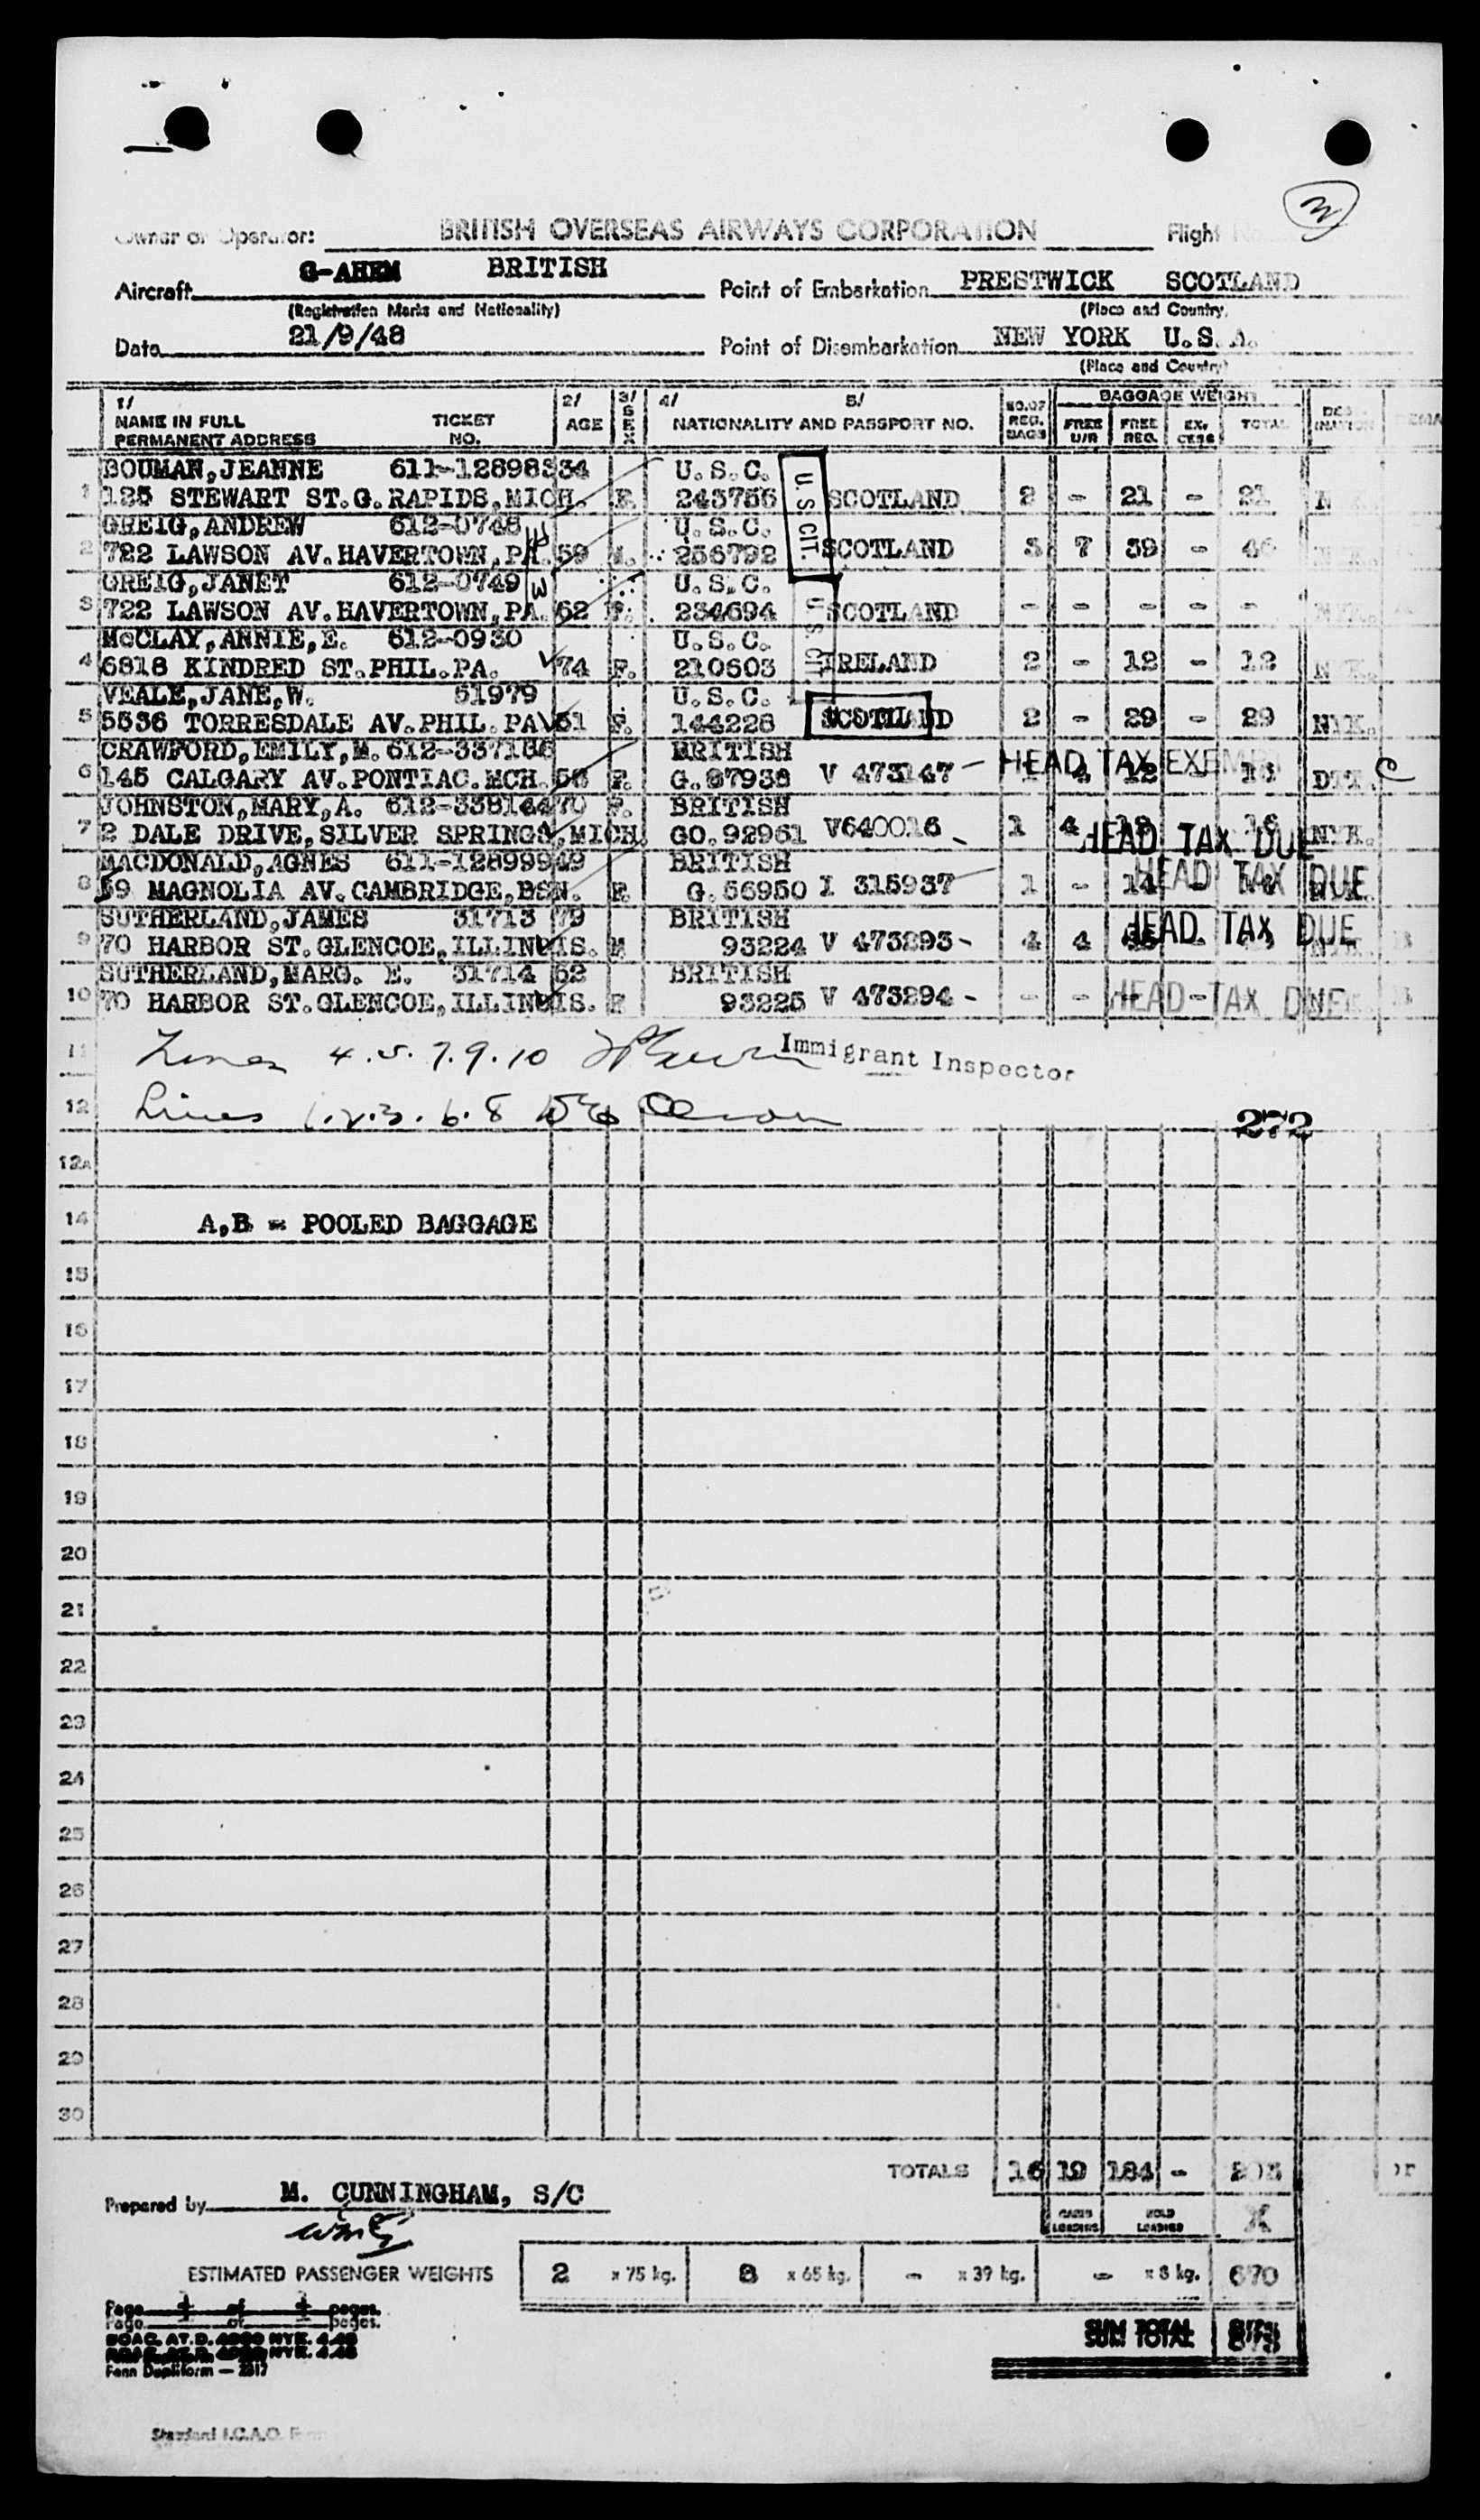 3
Owner or Operator: BRITISH OVERSEAS AIRWAYS CORPORATION Flight
Aircraft G-AHEM BRITISH Point of Embarkation PRESTWICK SCOTLAND
(Registration Marks and Nationality) (Place and Country)
Date 21/9/48 Point of Disembarkation NEW YORK U.S.A.
(Place and Country)
1/ 2/ 3/ 4/ 5/ NO. OF REG. BAGS BAGGAGE WEIGHT
NAME IN FULL TICKET AGE SEX NATIONALITY AND PASSPORT NO. FREE U/R FREE REG. EXCESS TOTAL DESTINATION
PERMANENT ADDRESS NO.
BOUMAN,JEANNE 611-128983 34 U.S.C.
1 125 STEWART ST.G.RAPIDS,MICH. F. 245756 SCOTLAND 2 - 21 - 21 N
U.S. CIT.
GREIG,ANDREW 612-0748 U.S.C.
2 722 LAWSON AV.HAVERTOWN,PA. 59 M. 256792 SCOTLAND 3 7 39 - 46
GREIG,JANET 612-0749 U.S.C.
3 722 LAWSON AV.HAVERTOWN,PA. 62 F. 234694 SCOTLAND - - - - -
U.S. CIT.
McCLAY,ANNIE,E. 612-0930 U.S.C.
4 6818 KINDRED ST.PHIL.PA. 74 F. 210603 IRELAND 2 - 12 - 12
VEALE,JANE,W. 51979 U.S.C.
5 5536 TORRESDALE AV.PHIL.PA 51 F. 144228 SCOTLAND 2 - 29 - 29 NYK.
CRAWFORD,EMILY,M. 612-337186 BRITISH
6 145 CALGARY AV.PONTIAC.MCH. 56 F. G.87938 V 473147 - HEAD TAX EXEMPT 4 12 16 DTT. C
JOHNSTON,MARY,A. 612-338144 70 F. BRITISH
7 2 DALE DRIVE,SILVER SPRINGS,MICH. GO.92961 V640016 - 1 4 HEAD TAX DUE 16 NYK.
MACDONALD,AGNES 611-128999 49 BRITISH
8 59 MAGNOLIA AV.CAMBRIDGE,BSN. F. G.56950 I 315937 1 - 14 HEAD TAX DUE
SUTHERLAND,JAMES 31713 79 BRITISH
9 70 HARBOR ST.GLENCOE,ILLINOIS. M 93224 V 473293 - 4 4 HEAD TAX DUE NYK. B
SUTHERLAND,MARG. E. 31714 62 BRITISH
10 70 HARBOR ST.GLENCOE,ILLINOIS. F 93225 V 473294 - - - HEAD TAX DUE B
11 Lines 4.5.7.9.10 Immigrant Inspector
12 Lines 1.2.3.6.8 Olson
272
12A
14 A,B = POOLED BAGGAGE
15
16
17
18
19
20
21
22
23
24
25
26
27
28
29
30
TOTALS 16 19 184 - 203
Prepared by M. CUNNINGHAM, S/C
CABIN LOADING HOLD LOADING
ESTIMATED PASSENGER WEIGHTS 2 x 75 kg. 8 x 65 kg. - x 39 kg. - x 8 kg. 670
Page of pages.
Page of pages.
SUM TOTAL 873
BOAC. AT.D. 4000 NYK. 4.48
Fenn Dupliform — 2317
Standard I.C.A.O.